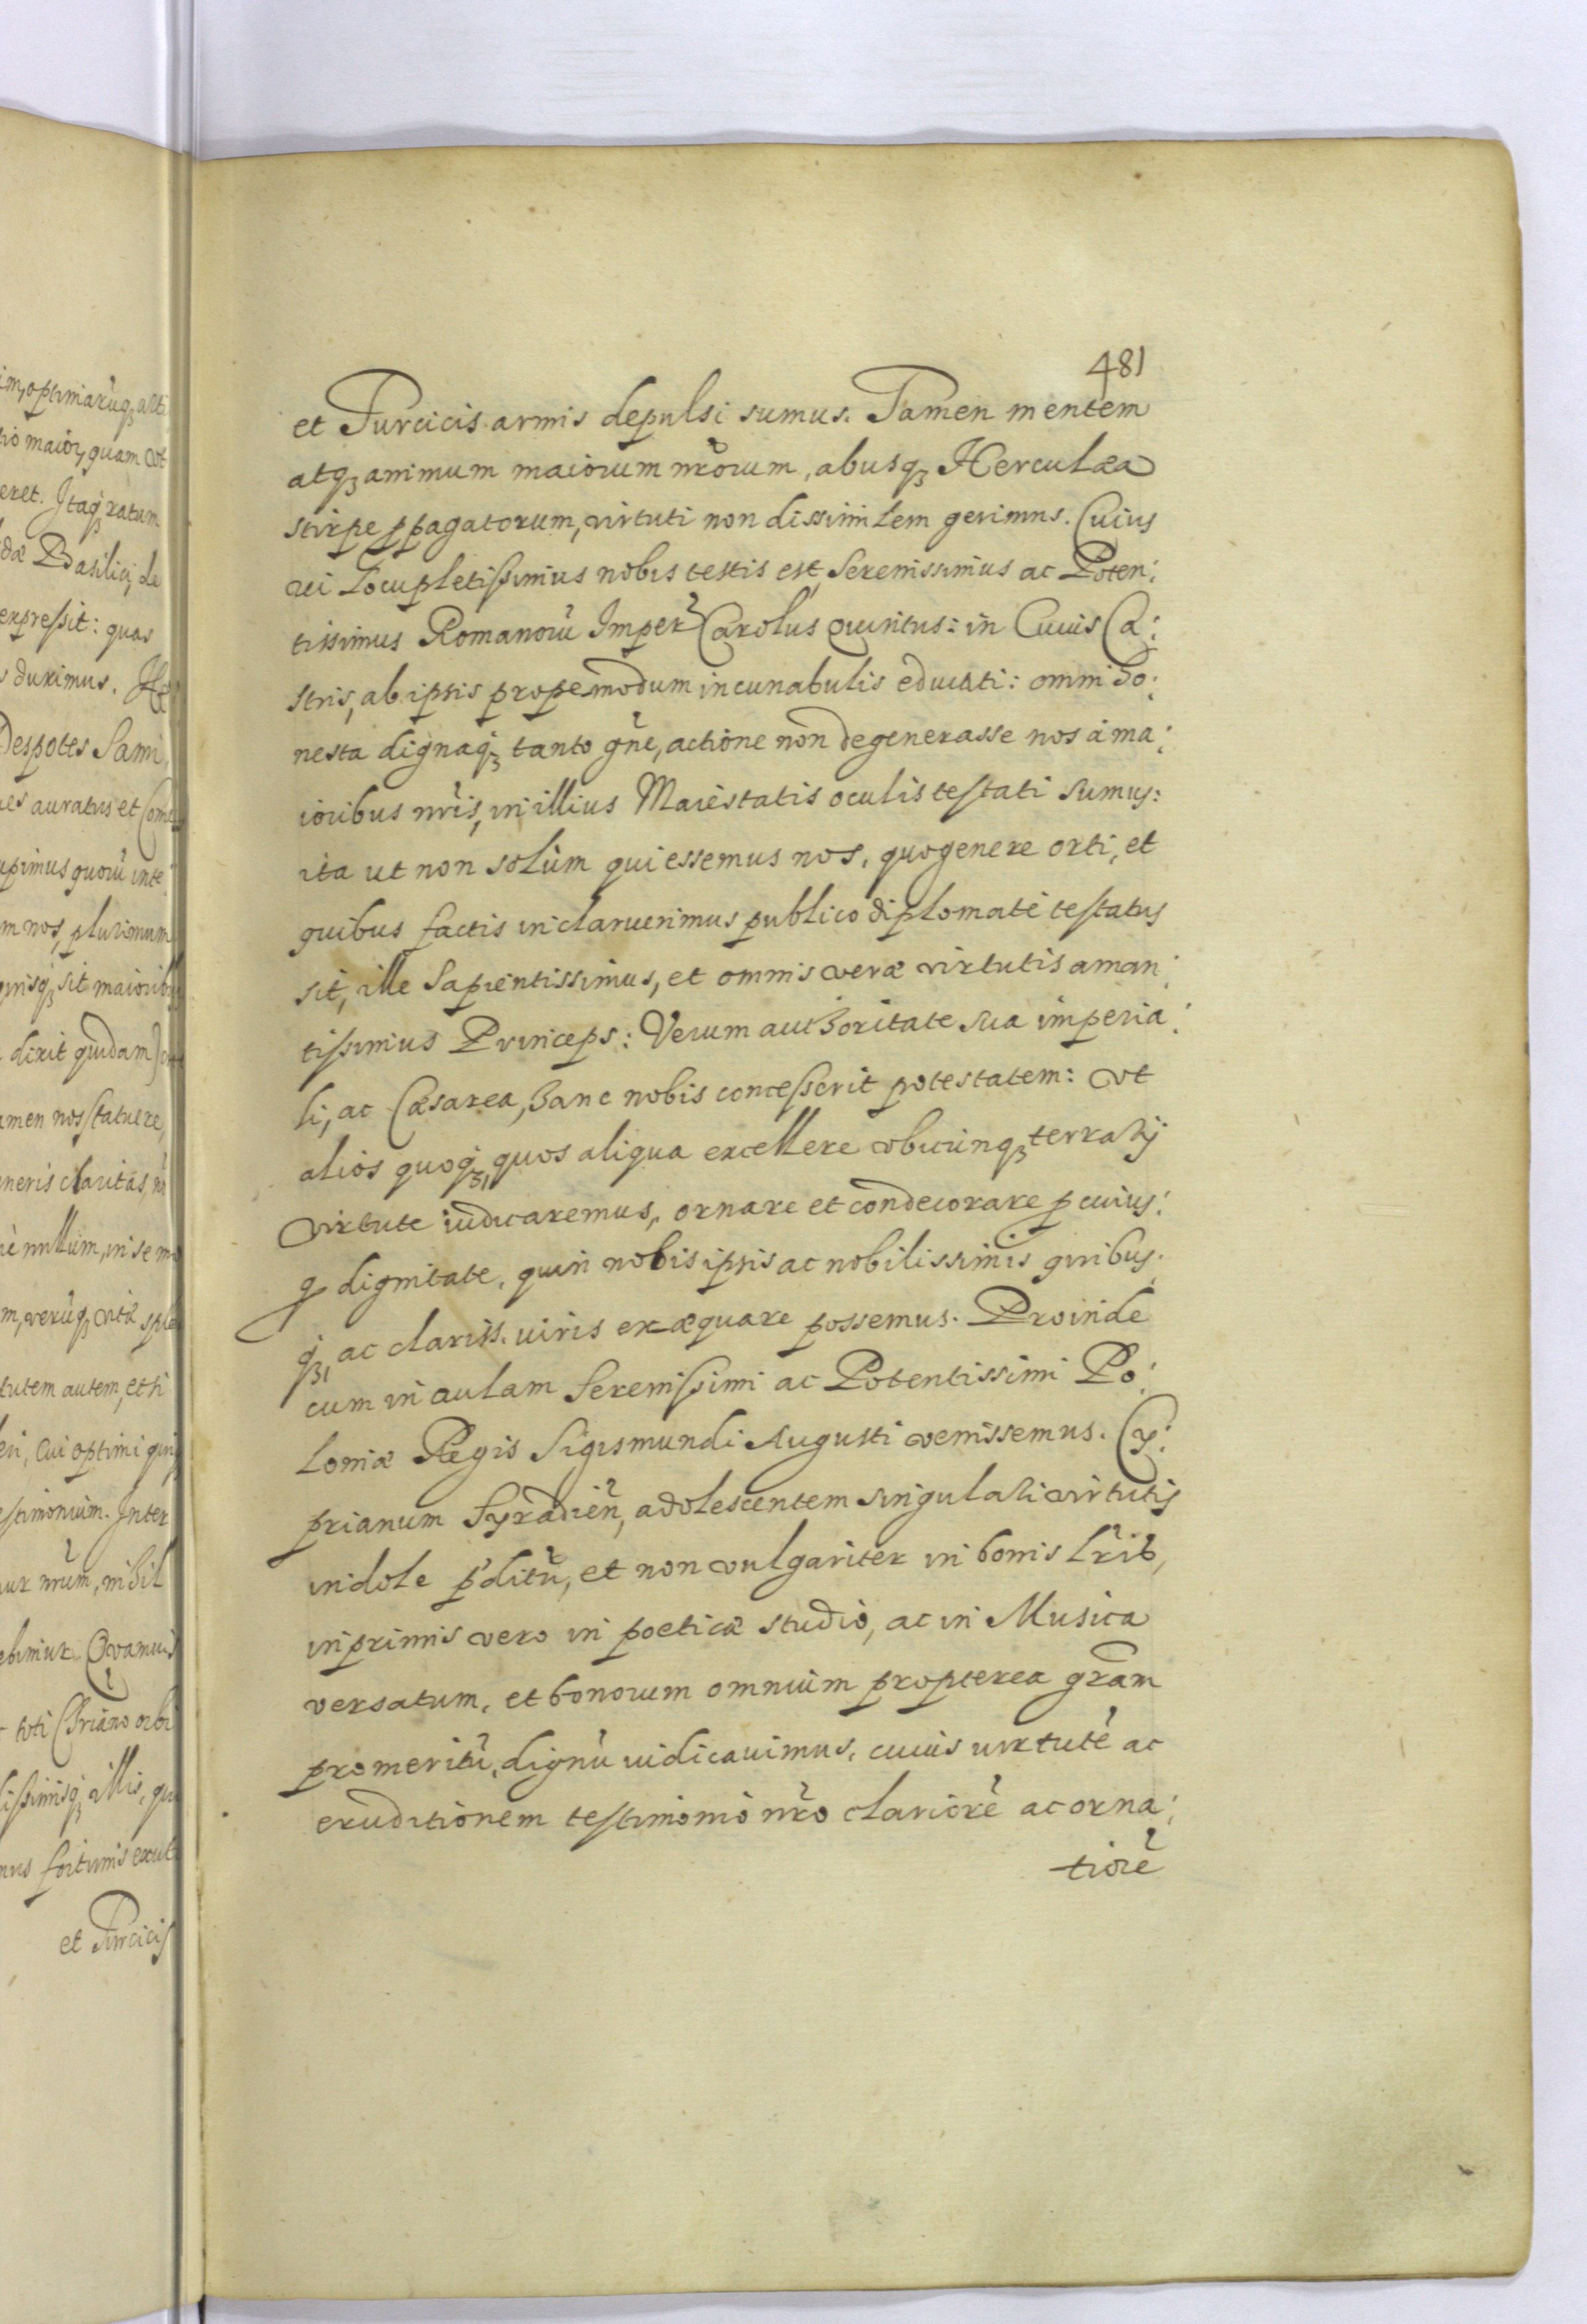 481
et Turcicis armis depulsi sumus. Tamen mentem
atq₃ animum maiorum nr̃orum, abusq₃ Herculæa
stirpe ꝓpagatorum, virtuti non dissimilem gerimus. Cuius
rei Locupletissimus nobis testis est, Serenissimus ac Poten:
tissimus Romanorũ Imper̃ Carolus Quintus: in Cuius Ca:
stris, ab ipsis propemodum incunabulis educati: omni ho:
nesta dignaq₃ tanto gñe, actione non degenerasse nos à ma:
ioribus nr̃is, in illius Maiestatis oculis testati sumus:
ita ut non solùm qui essemus nos, quo genere orti, et
quibus factis inclaruerimus publico diplomate testatus
sit, ille Sapientissimus, et omnis veræ virtutis aman:
tissimus Princeps: Verum authoritate sua imperia:
li, ac Cæsarea, hanc nobis concesserit potestatem: vt
alios quoq₃, quos aliqua excellere vbicunq₃ terrarij
virtute iudicaremus, ornare et condecorare ꝑ cuius:
q dignitate, quin nobis ipsis ac nobilissimis quibus:
q₃, ac clariss. viris exæquare possemus. Proinde
cum in aulam Serenissimi ac Potentissimi Po:
loniæ Regis Sigismundi Augusti venissemus. Cy:
prianum Syradień, adolescentem singulari virtutis
indole p̃ditũ, et non vulgariter in bonis lr̃ib,
inprimis vero in poeticæ studio, ac in Musica
versatum, et bonorum omnium propterea gr̃am
promeritũ, dignũ iudicauimus, cuius virtutẽ ac
eruditionem testimonio nr̃o clariorẽ ac orna:
tiorẽ
im, optimarũq₃ arti
tio maior, quam vt
eret. Itaq₃ ratum
dæ Basilici, de
expressit: quas
s duximus. Hæ
Despotes Sami,
ues auratus et Come
upimus quorũ inte
m nos, plurimum
quisq₃ sit maiorib
dixit quidam)
amen nos statuere,
neris claritas, nõ
nullum, in se
m, verũq₃ vitæ sple
tutem autem, et si
eri, Cui optimi qui
estimonium. Inter
ur nr̃um, nihil
ebimur. Quamuis
toti Chriano orbi
lissimisq₃ illis, qui
nus fortunis exuti
et Turcicis